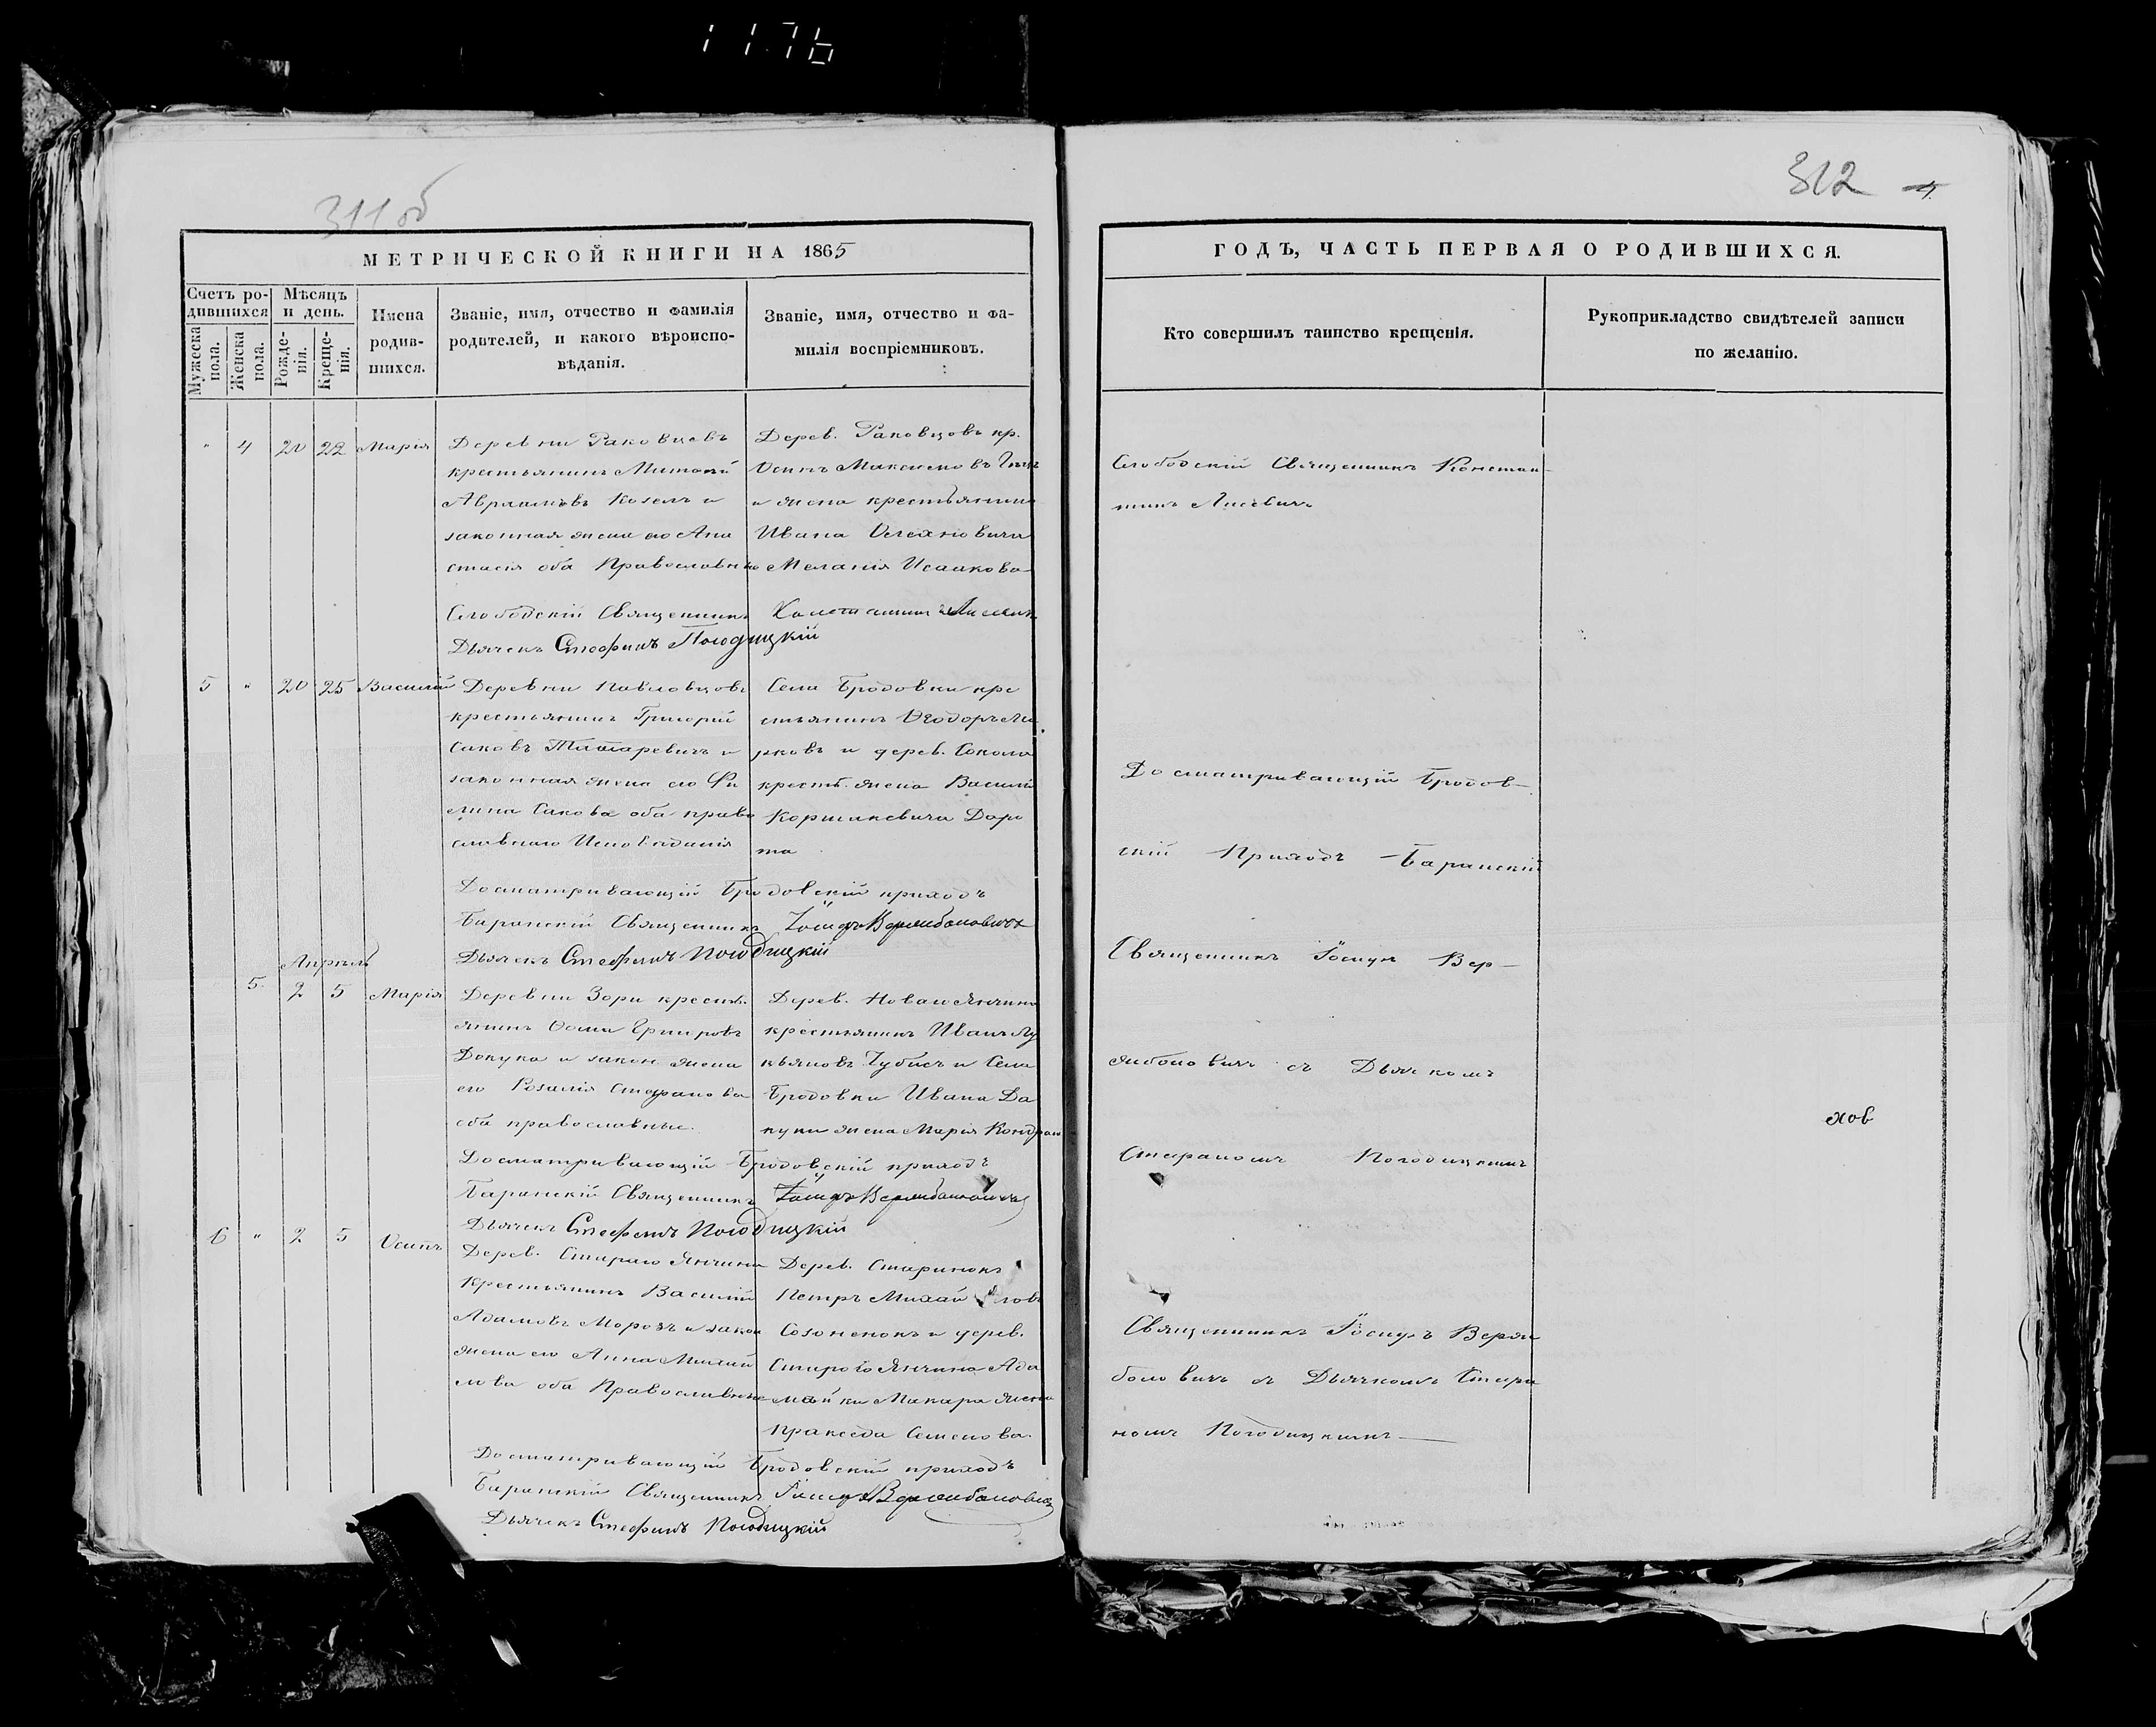 1176
311об
312
МЕТРИЧЕСКОЙ КНИГИ НА 1865
ГОДЪ, ЧАСТЬ ПЕРВАЯ О РОДИВШИХСЯ.
Счетъ ро-
дившихся
Мужеска
пола.
Женска
пола.
Мѣсяцъ
и день.
Рожде-
нія.
Креще-
нія.
Имена
родив-
шихся.
Званіе, имя, отчество и фамилія
родителей, и какого вѣроиспо-
вѣданія.
Званіе, имя, отчество и фа-
милія воспріемниковъ.
Кто совершилъ таинство крещенія.
Рукоприкладство свидѣтелей записи
по желанію.
" 4 20 22 Марія
Деревни Раковцевъ
крестьянинъ
Козелъ и
законная жена его Ана
стасія оба Православные
Дерев. Раковцовъ кр.
Осипъ Максимовъ
и жена крестьянина
Ивана
Меланія Исаакова
Слободскій Священникъ
Дьячекъ Стефанъ Погодицкій
Слободскій Священникъ Констан-
тинъ Лисевичъ
5 " 20 25 Василій
Деревни Павловцовъ
крестьянинъ Григорій
Саковъ и
законная жена его Фи
лина Сакова оба право
славнаго Исповѣданія
Села Бродовки кре
стьянинъ Ѳеодоръ
и дерев. Сокола
крестьян. жена Василія
Коршакевича Доро
та
Досматривающій Бродовскій приходъ
Баранскій Священникъ Іосифъ Вержболовичъ
Дьячекъ Стефанъ Погодицкій
Досматривающій Бродов-
скій Приходъ Баранскій
Священникъ Іосифъ Вер-
жболовичъ съ Дьячкомъ
Стефаномъ Погодицкимъ
Апрѣль
5 2 5 Марія
Деревни Зори кресть
янинъ Ѳома
Докука и закон жена
его Розалія Стефанова
оба православные.
Дерев. Новаго Янчина
крестьянинъ Иванъ Лу
кьяновъ Чубисъ и Села
Бродовки Ивана До
куки жена Марія Кондрат
хов
Досматривающій Бродовскій приходъ
Баранскій Священникъ Іосифъ Вержболовичъ
Дьячекъ Стефанъ Погодицкій
6 " 2 5 Осипъ
Дерев. Стараго Янчина
Крестьянинъ Василій
Адамовъ Морозъ и закон
жена его Анна Михай
лова оба Православные
Дерев. Старинокъ
Петръ Михайловъ
Созоненокъ и дерев.
Стараго Янчина Ада
майки Макара жена
Пракседа Семенова.
Досматривающій Бродовскій приходъ
Баранскій Священникъ Іосифъ Вержболовичъ
Дьячекъ Стефанъ Погодицкій
Священникъ Іосифъ Верж
боловичъ съ Дьячкомъ Стефа
номъ Погодицкимъ